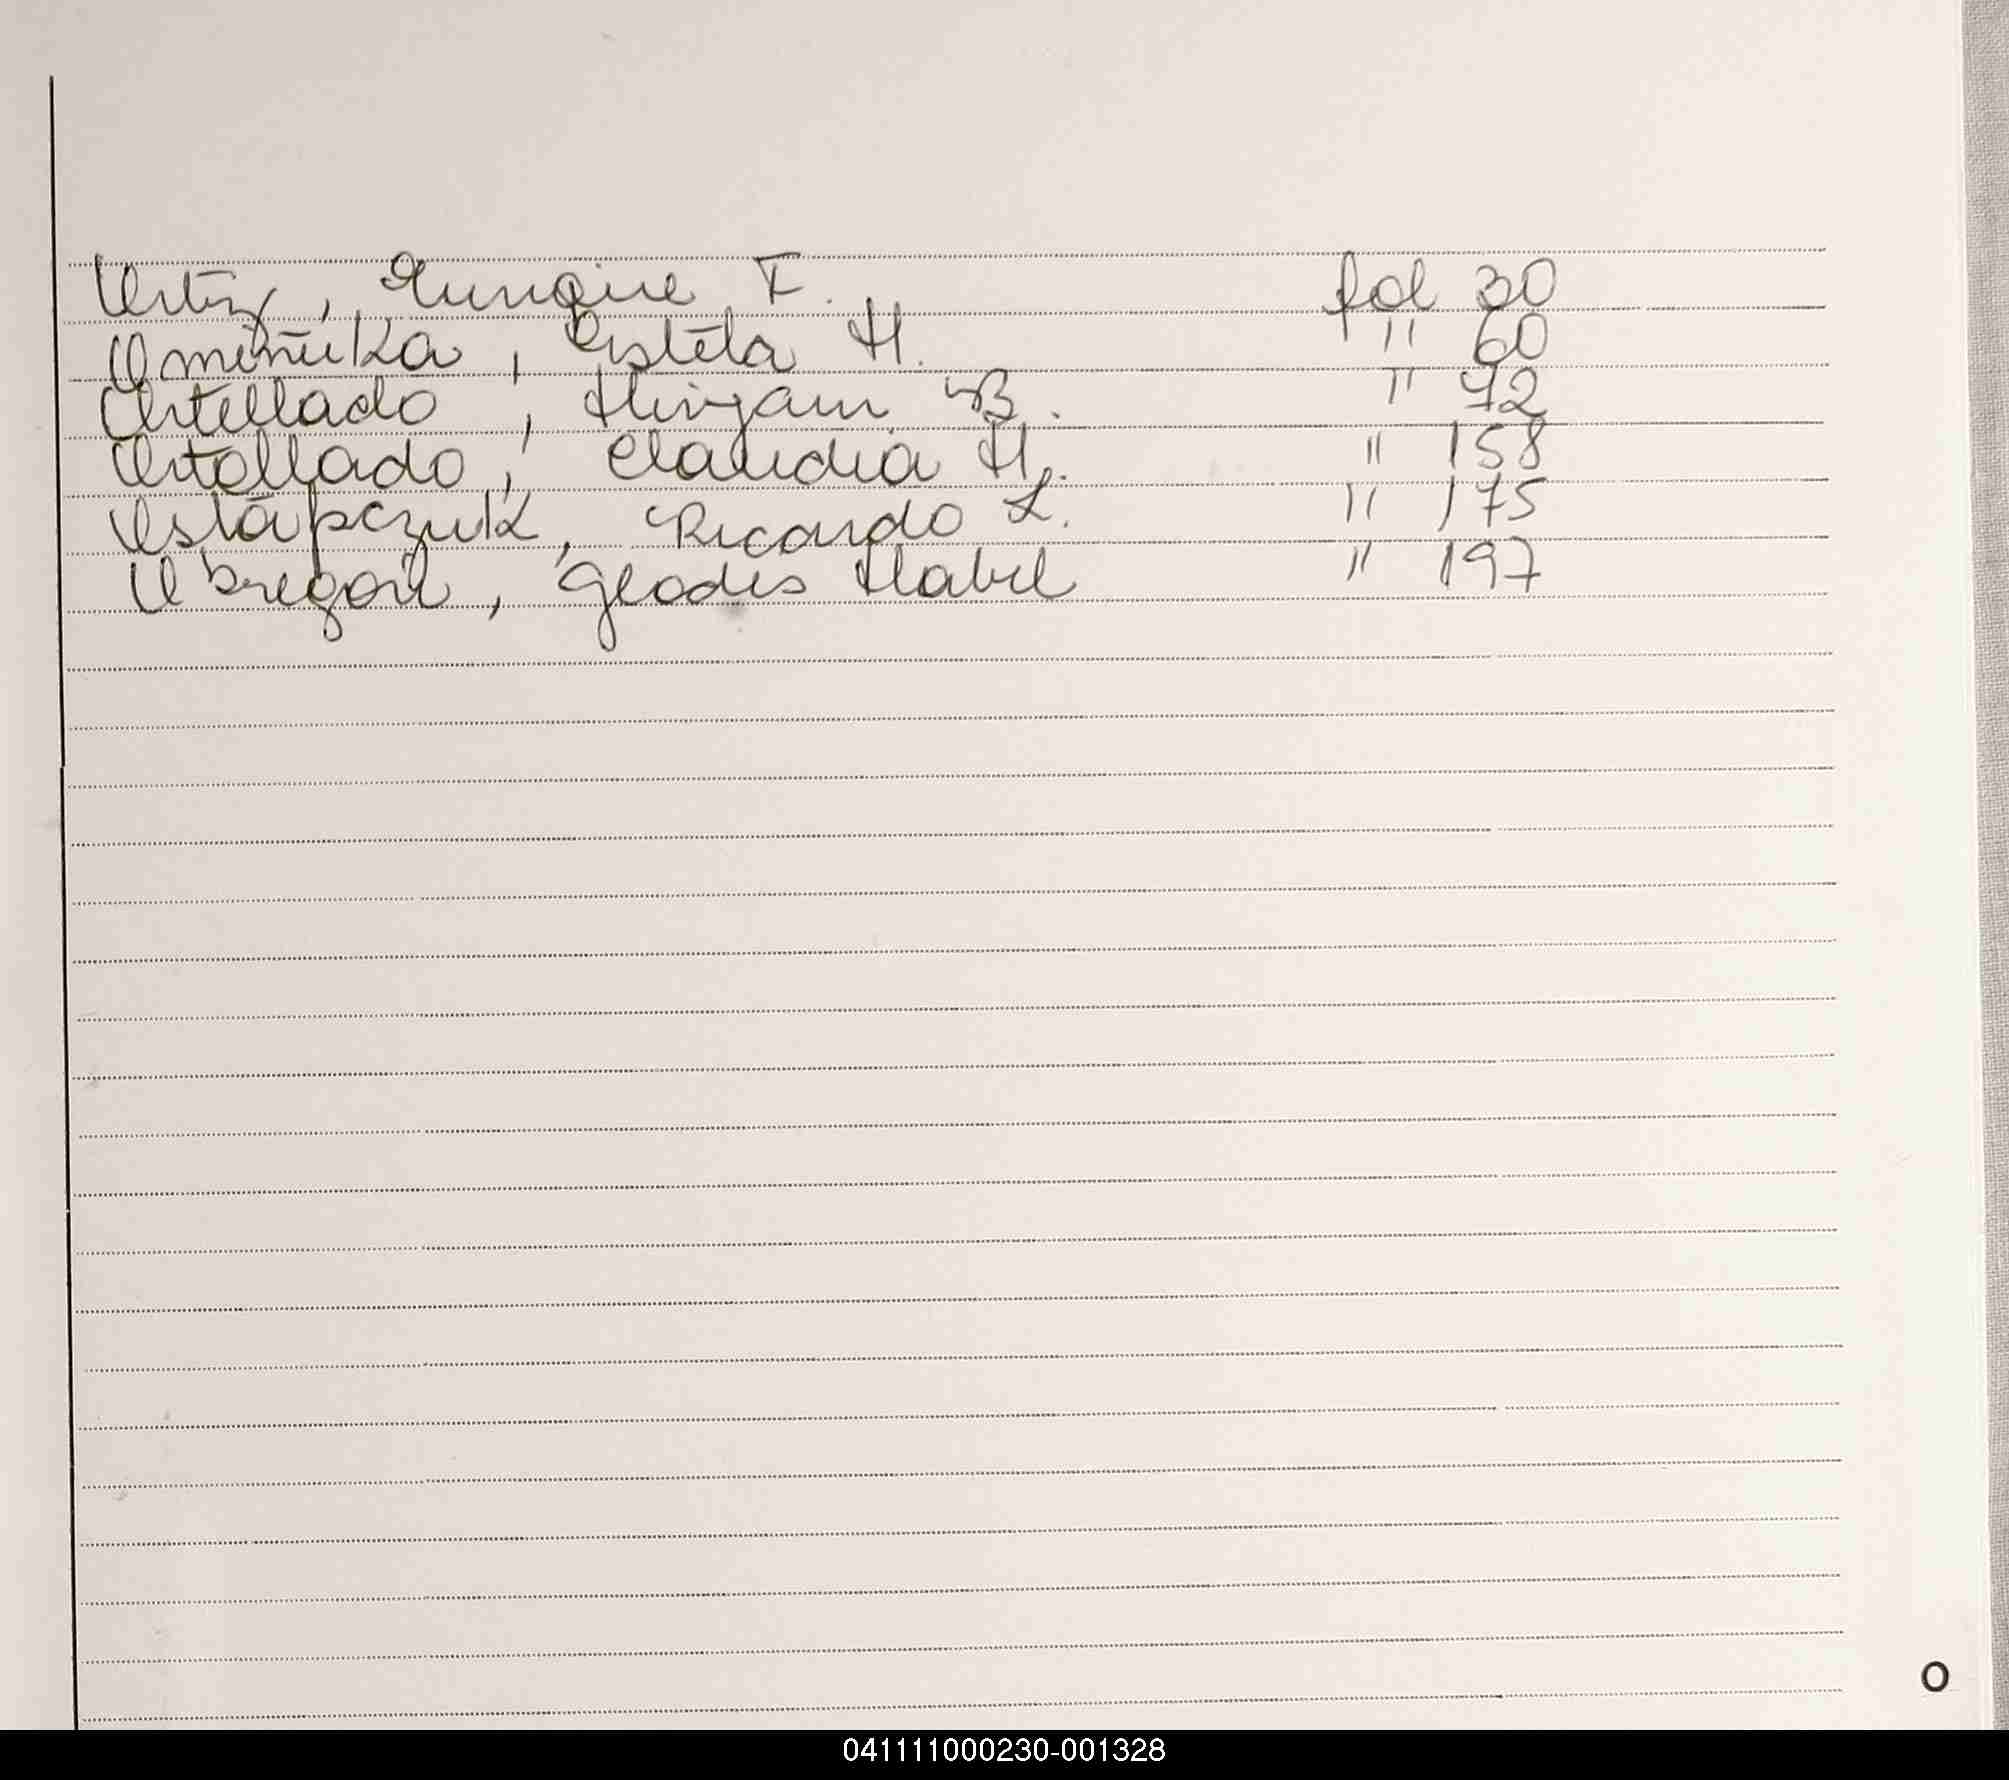 Ortiz, Enrique F. fol 30
Omeñuka, Estela M. " 60
Ortellado, Miryam B. " 72
Ortellado, Claudia M. " 158
Ostapczuk, Ricardo L. " 175
Obregon, Glodis Mabel " 197
O
041111000230-001328